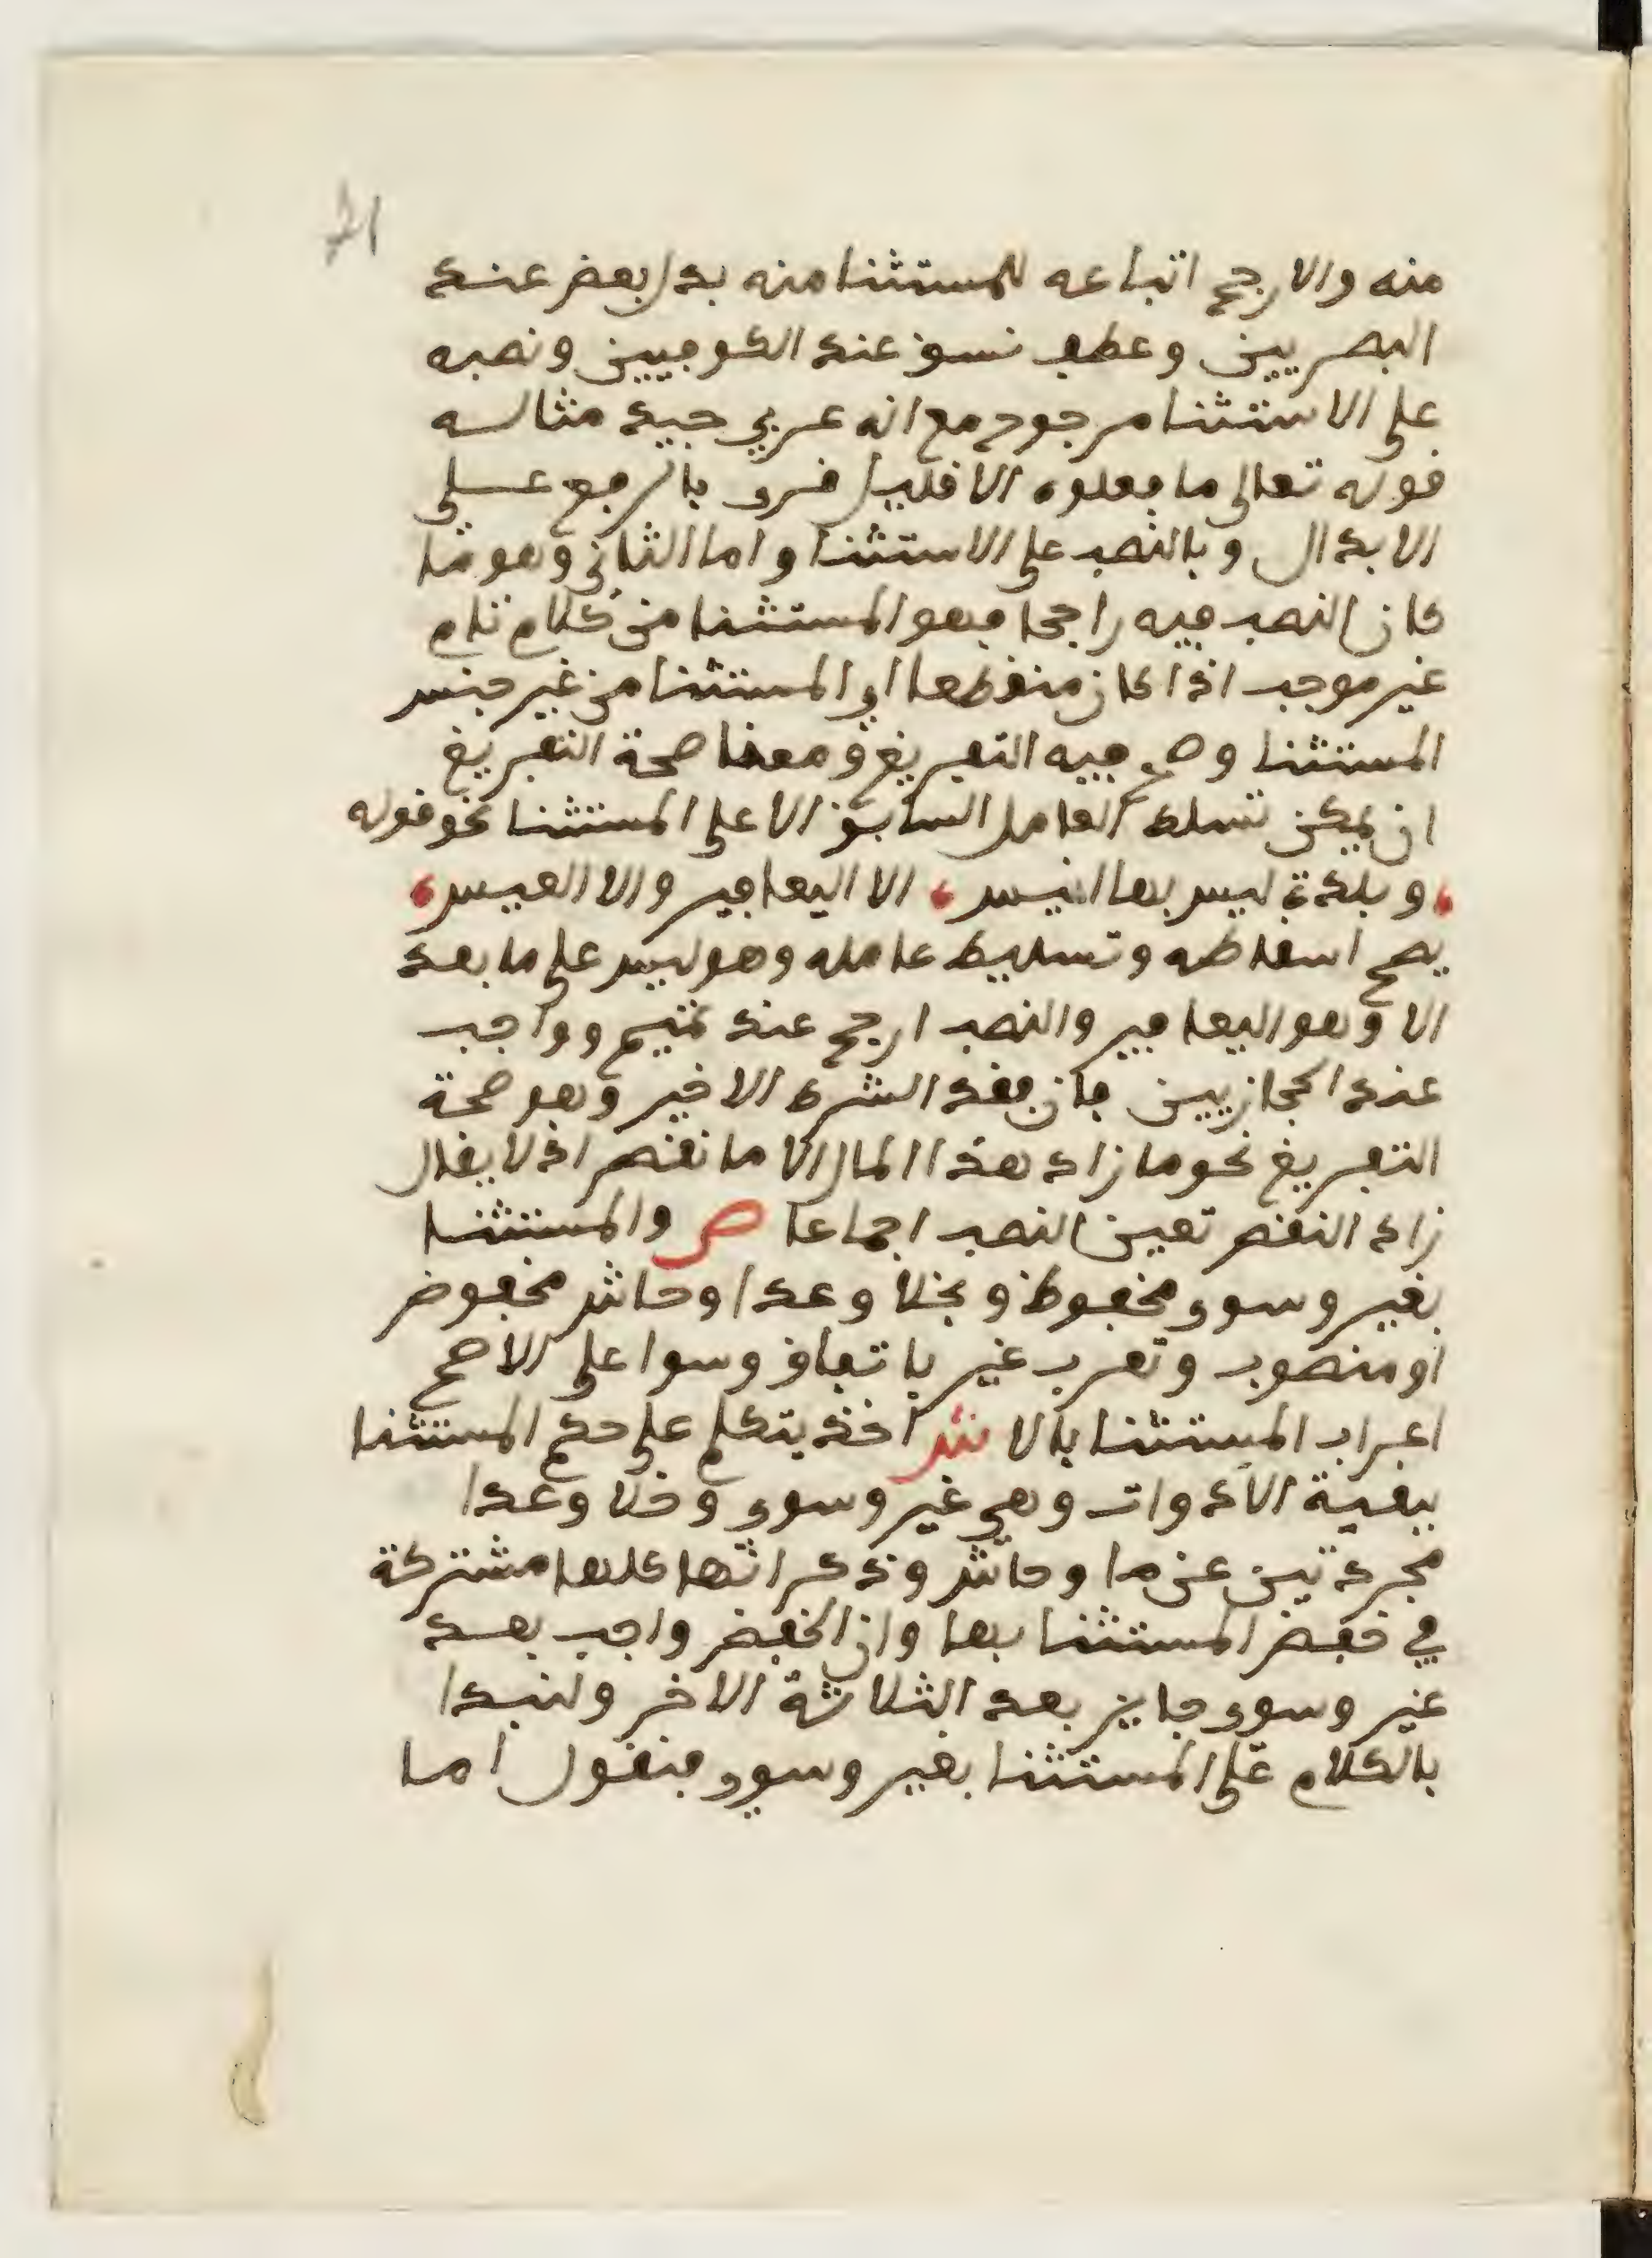 منه والارجح اتباعه للمستثنا منه بدل بعض عند
البصريين وعطف نسق عند الكوفيين ونصبه
على الاستثنا مرجوح مع انه عربي جيد مثاله
قوله تعالى ما فعلوه الا قليل قرى بالرفع على
الابدال وبالنصب على الاستثنا واما الثاني وهو ما
كان النصب فيه راجحا فهو المستثنا من كلام تام
غير موجب اذا كان منقطعا اي المستثنا من غير جنس
المستثنا وصح فيه التفريغ ومعنا صحة التفريغ
ان يمكن تسلط العامل السابق الا على المستثنا نحو قوله
وبلدة ليس بها انيس الا اليعافير والا العيس
يصح اسقاطه وتسليط عامله وهو ليس على ما بعد
الا وهو اليعافير والنصب ارجح عند تميم وواجب
عند الحجازيين فان فقد الشرط الاخير وهو صحة
التفريغ نحو ما زاد هذا المال الا ما نقص اذ لا يقال
زاد النقص تعين النصب اجماعا ص والمستثنا
بغير وسوى مخفوظ وبخلا وعدا وحاش مخفوض
او منصوب وتعرب غير باتفاق وسوا على الاصح
اعراب المستثنا بالا ش اخذ يتكلم على حكم المستثنا
ببقية الادوات وهي غير وسوى وخلا وعدا
مجردتين عن ما وحاش وذكر انها كلها مشتركة
في خفض المستثنا بها وان الخفض واجب بعد
غير وسوى جايز بعد الثلاثة الاخر ولنبدا
بالكلام على المستثنا بغير وسوى فنقول اما